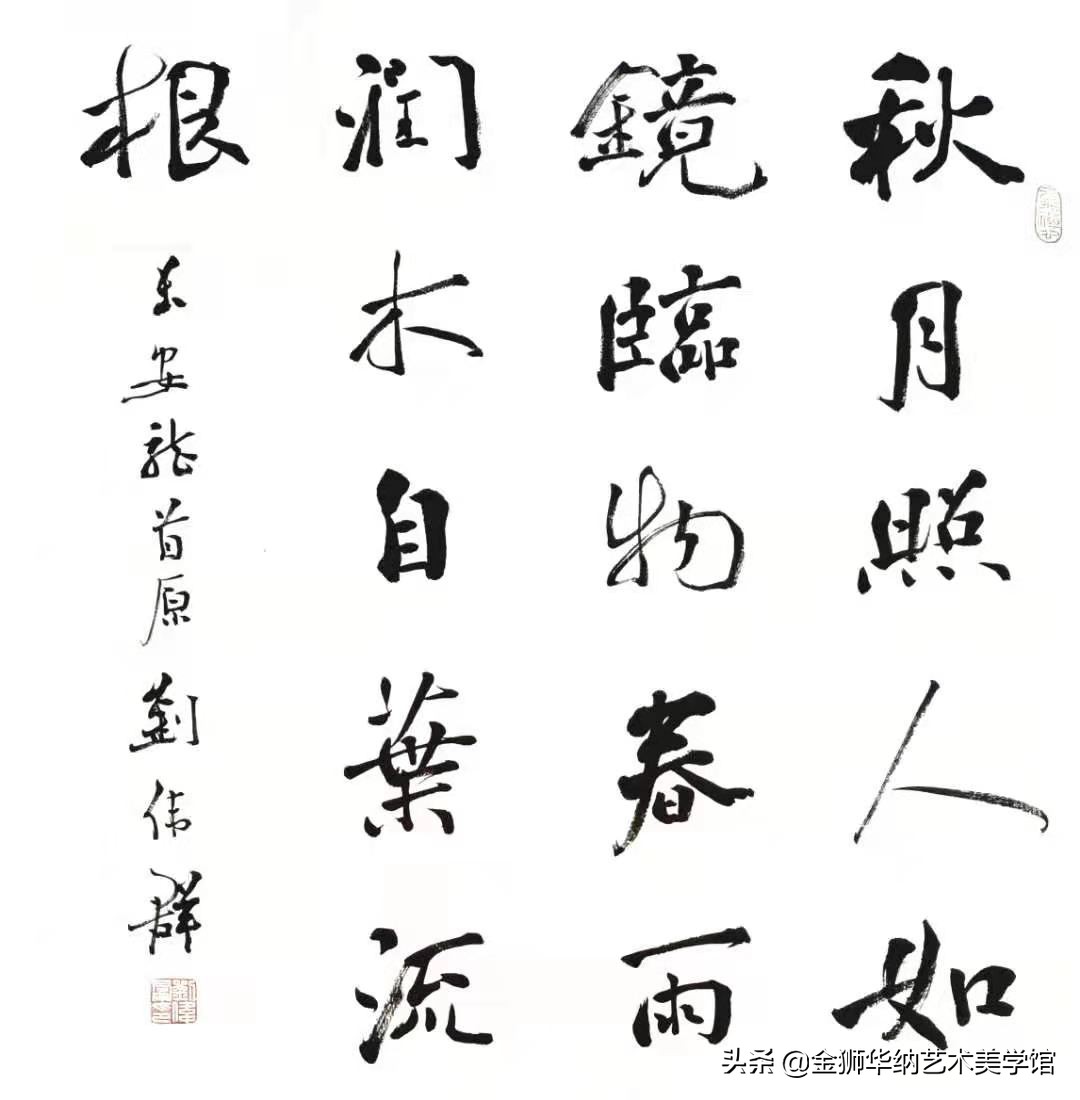 秋月照人如
鏡臨物春雨
潤木自葉流
根
長安龍首原
劉偉群
头条 @金狮华纳艺术美学馆